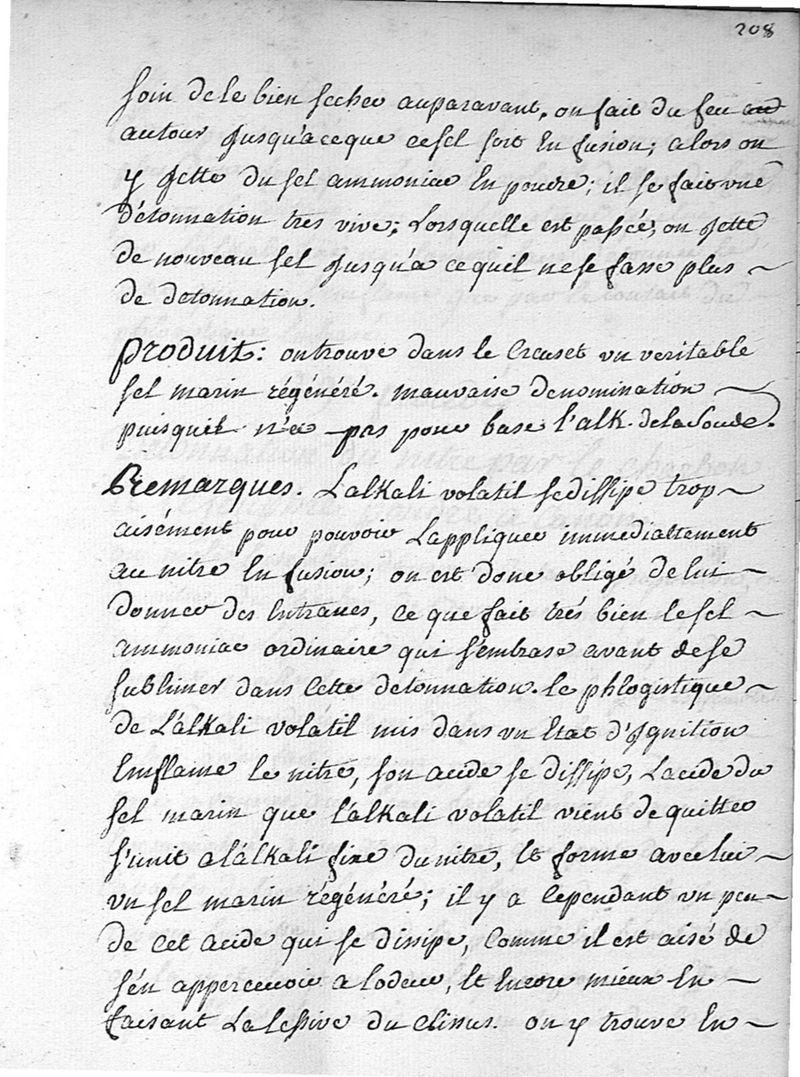 208
soin de le bien secher auparavant, on fait du feu
autour jusqu'a ceque ce sel soit En fusion; alors on
y jette du sel ammoniac En poudre; il se fait une
détonnation tres vive; Lorsquelle est passée, on jette
de nouveau sel jusqu'a ce quil ne se fasse plus ~
de detonnation.
produit: on trouve dans le Creuset un veritable
sel marin régénéré. mauvaise denomination ~
puisquil n'a pas pour base l'alk. de la Soude.
Remarques. L'alkali volatil se dissipe trop ~
aisément pour pouvoir L'appliquer immediatement
au nitre En fusion; on est donc obligé de lui
donner des Entraves, ce que fait trés bien le sel ~
ammoniac ordinaire qui s'embrase avant de se
sublimer dans Cette detonnation. le phlogistique ~
de L'alkali volatil mis dans un Etat d'Ignition
Emflame le nitre, son acide se dissipe, L'acide du
sel marin que l'alkali volatil vient de quitter
s'unit a l'alkali fixe du nitre, Et forme avec lui ~
un sel marin régénéré; il y a Cependant un peu ~
de Cet acide qui se dissipe, Comme il est aisé de
s'én appercevoir a lodeur, Et Encore mieux En ~
faisant La lessive du Clissus. on y trouve En ~